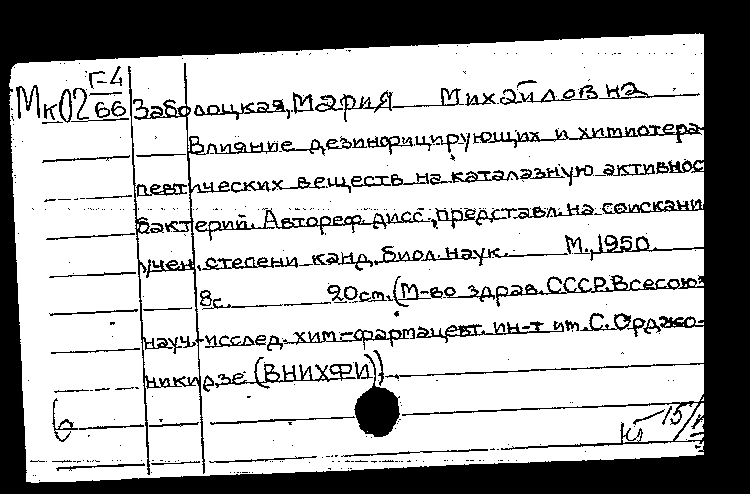 Г-4
Мк02 66 Заболоцкая, Мария Михайловна
Влияние дезинфицирующих и химиотера-
певтических веществ на каталазную активнос
бактерий. Автореф. дисс., представл. на соискани
учен. степени канд. биол. наук. М., 1950.
8с. 20см. (М-во здрав. СССР. Всесоюз
науч.-исслед. хим-фармацевт. ин-т им. С. Орджо-
никидзе (ВНИХФИ)).
6
15/